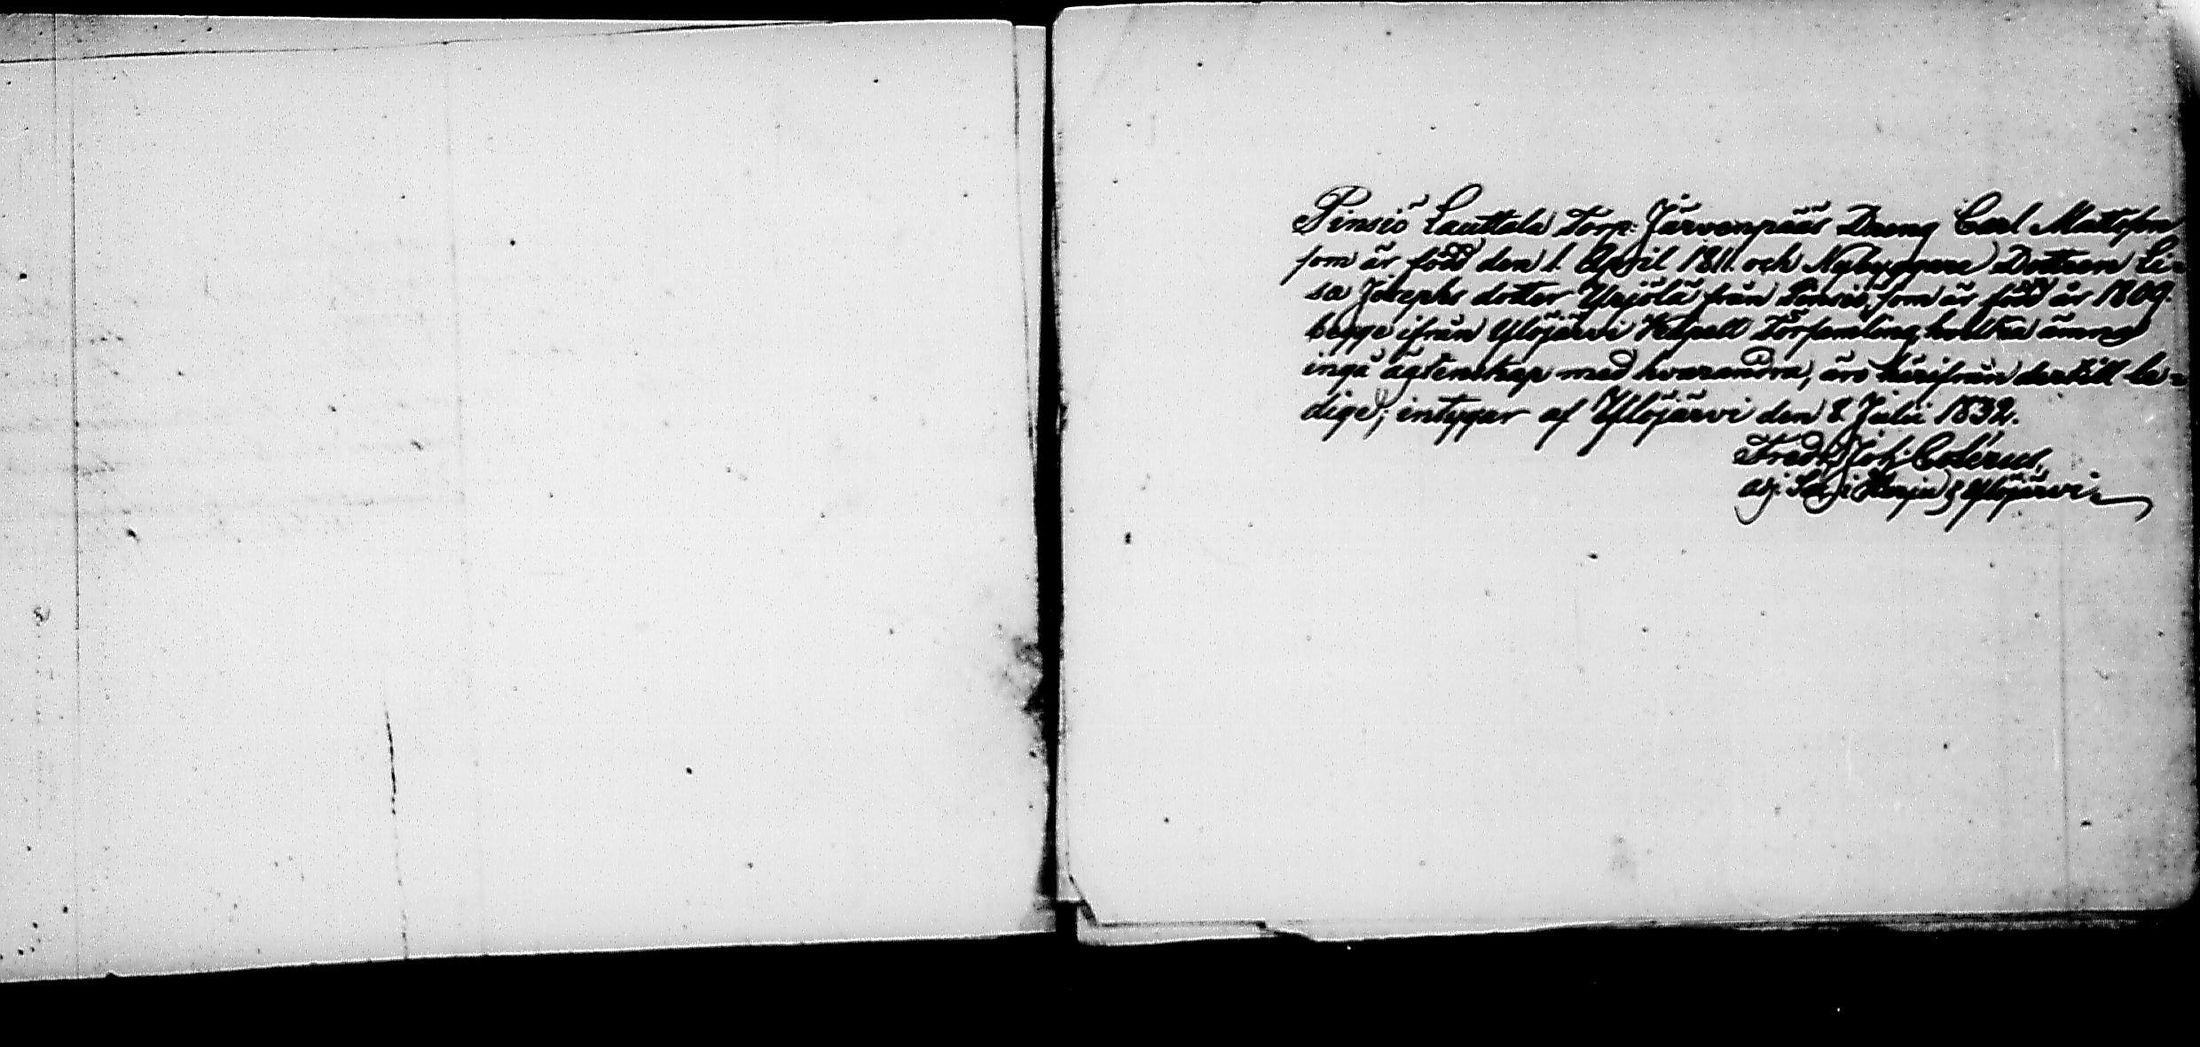 Pinsiö Lauttala Torp: Järvenpääs Dreng Carl Matsson
som är född den 1. April 1811. och Nybyggare Dottren Li-
sa Josephs dotter Yrjölä från Pinsiö, som är född år 1809.
begge ifrån Ylöjärvi Kapell Församling, hvilka ämna
ingå ägtenskap med hvarandra, äro härifrån dertill le-
dige; intygar af Ylöjärvi den 8 Julii 1832.
Fredr. Joh. Colérus,
adj. i Harju & Ylöjärvi